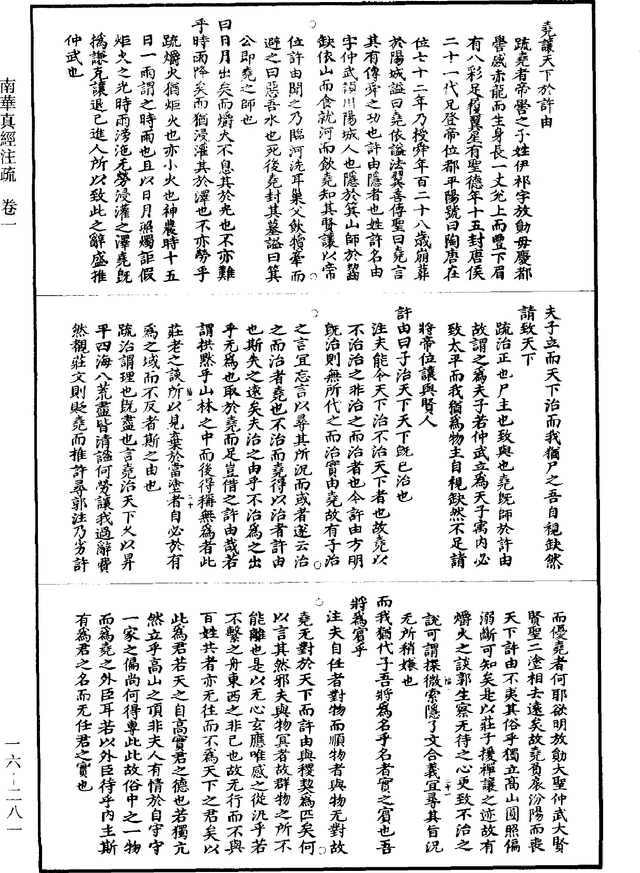 堯讓天下於許由
疏堯者帝嚳之子姓伊祁字放勳母慶都
嚳感赤龍而生身長一丈兌上而豐下眉
有八彩足履翼星有聖德年十五封唐侯
二十一代兄登帝位都平陽號曰陶唐在
位七十二年乃授舜年百二十八歲崩葬
於陽城謚曰堯依謚法翼善傳聖曰堯言
其有傳舜之功也許由隱者也姓許名由
字仲武潁川陽城人也隱於箕山師於齧
缺依山而食就河而飲堯知其賢讓以帝
位許由聞之乃臨河洗耳巢父飲犢牽而
避之曰惡吾水也死後堯封其墓謚曰箕
公即堯之師也
曰日月出矣而爝火不息其於光也不亦難
乎時雨降矣而猶浸灌其於澤也不亦勞乎
疏爝火猶炬火也亦小火也神農時十五
日一雨謂之時雨也且以日月照燭詎假
炬火之光時雨滂沱无勞浸灌之澤堯既
撝謙克讓退己進人所以致此之辭盛推
仲武也
夫子立而天下治而我猶尸之吾自視缺然
請致天下
疏治正也尸主也致與也堯既師於許由
故謂之為夫子若仲武立為天子㝢內必
致太平而我猶為物主自視缺然不足請
將帝位讓與賢人
許由曰子治天下天下既已治也
注夫能令天下治不治天下者也故堯以
不治治之非治之而治者也今許由方明
既治則無所代之而治實由堯故有子治
之言宜忘言以尋其所況而或者遂云治
之而治者堯也不治而堯得以治者許由
也斯失之遠矣夫治之由乎不治為之出
乎无為也取於堯而足豈借之許由哉若
謂拱默乎山林之中而後得稱無為者此
莊老之談所以見棄於當塗者自必於有
為之域而不反者斯之由也
疏治謂理也既盡也言堯治天下久以昇
平四海八荒盡皆清謐何勞讓我過辭費
然觀莊文則貶堯而推許尋郭注乃劣許
而優堯者何耶欲明放勳大聖仲武大賢
賢聖二塗相去遠矣故堯負扆汾陽而喪
天下許由不夷其俗乎獨立高山圓照偏
溺斷可知矣是以莊子援禪讓之迹故有
爝火之談郭生察无待之心更致不治之
說可謂探微索隱了文合義宜尋其旨況
无所稍嫌也
而我猶代子吾將為名乎名者實之賓也吾
將為賓乎
注夫自任者對物而順物者與物无對故
堯无對於天下而許由與稷契為匹矣何
以言其然邪夫與物冥者故群物之所不
能離也是以无心玄應唯感之從汎乎若
不繫之舟東西之非己也故无行而不與
百姓共者亦无往而不為天下之君矣以
此為君若天之自高實君之德也若獨亢
然立乎高山之頂非夫人有情於自守守
一家之偏尚何得專此此故俗中之一物
而為堯之外臣耳若以外臣待乎內主斯
有為君之名而无任君之實也
南華真經注疏 卷一
一六－二八一